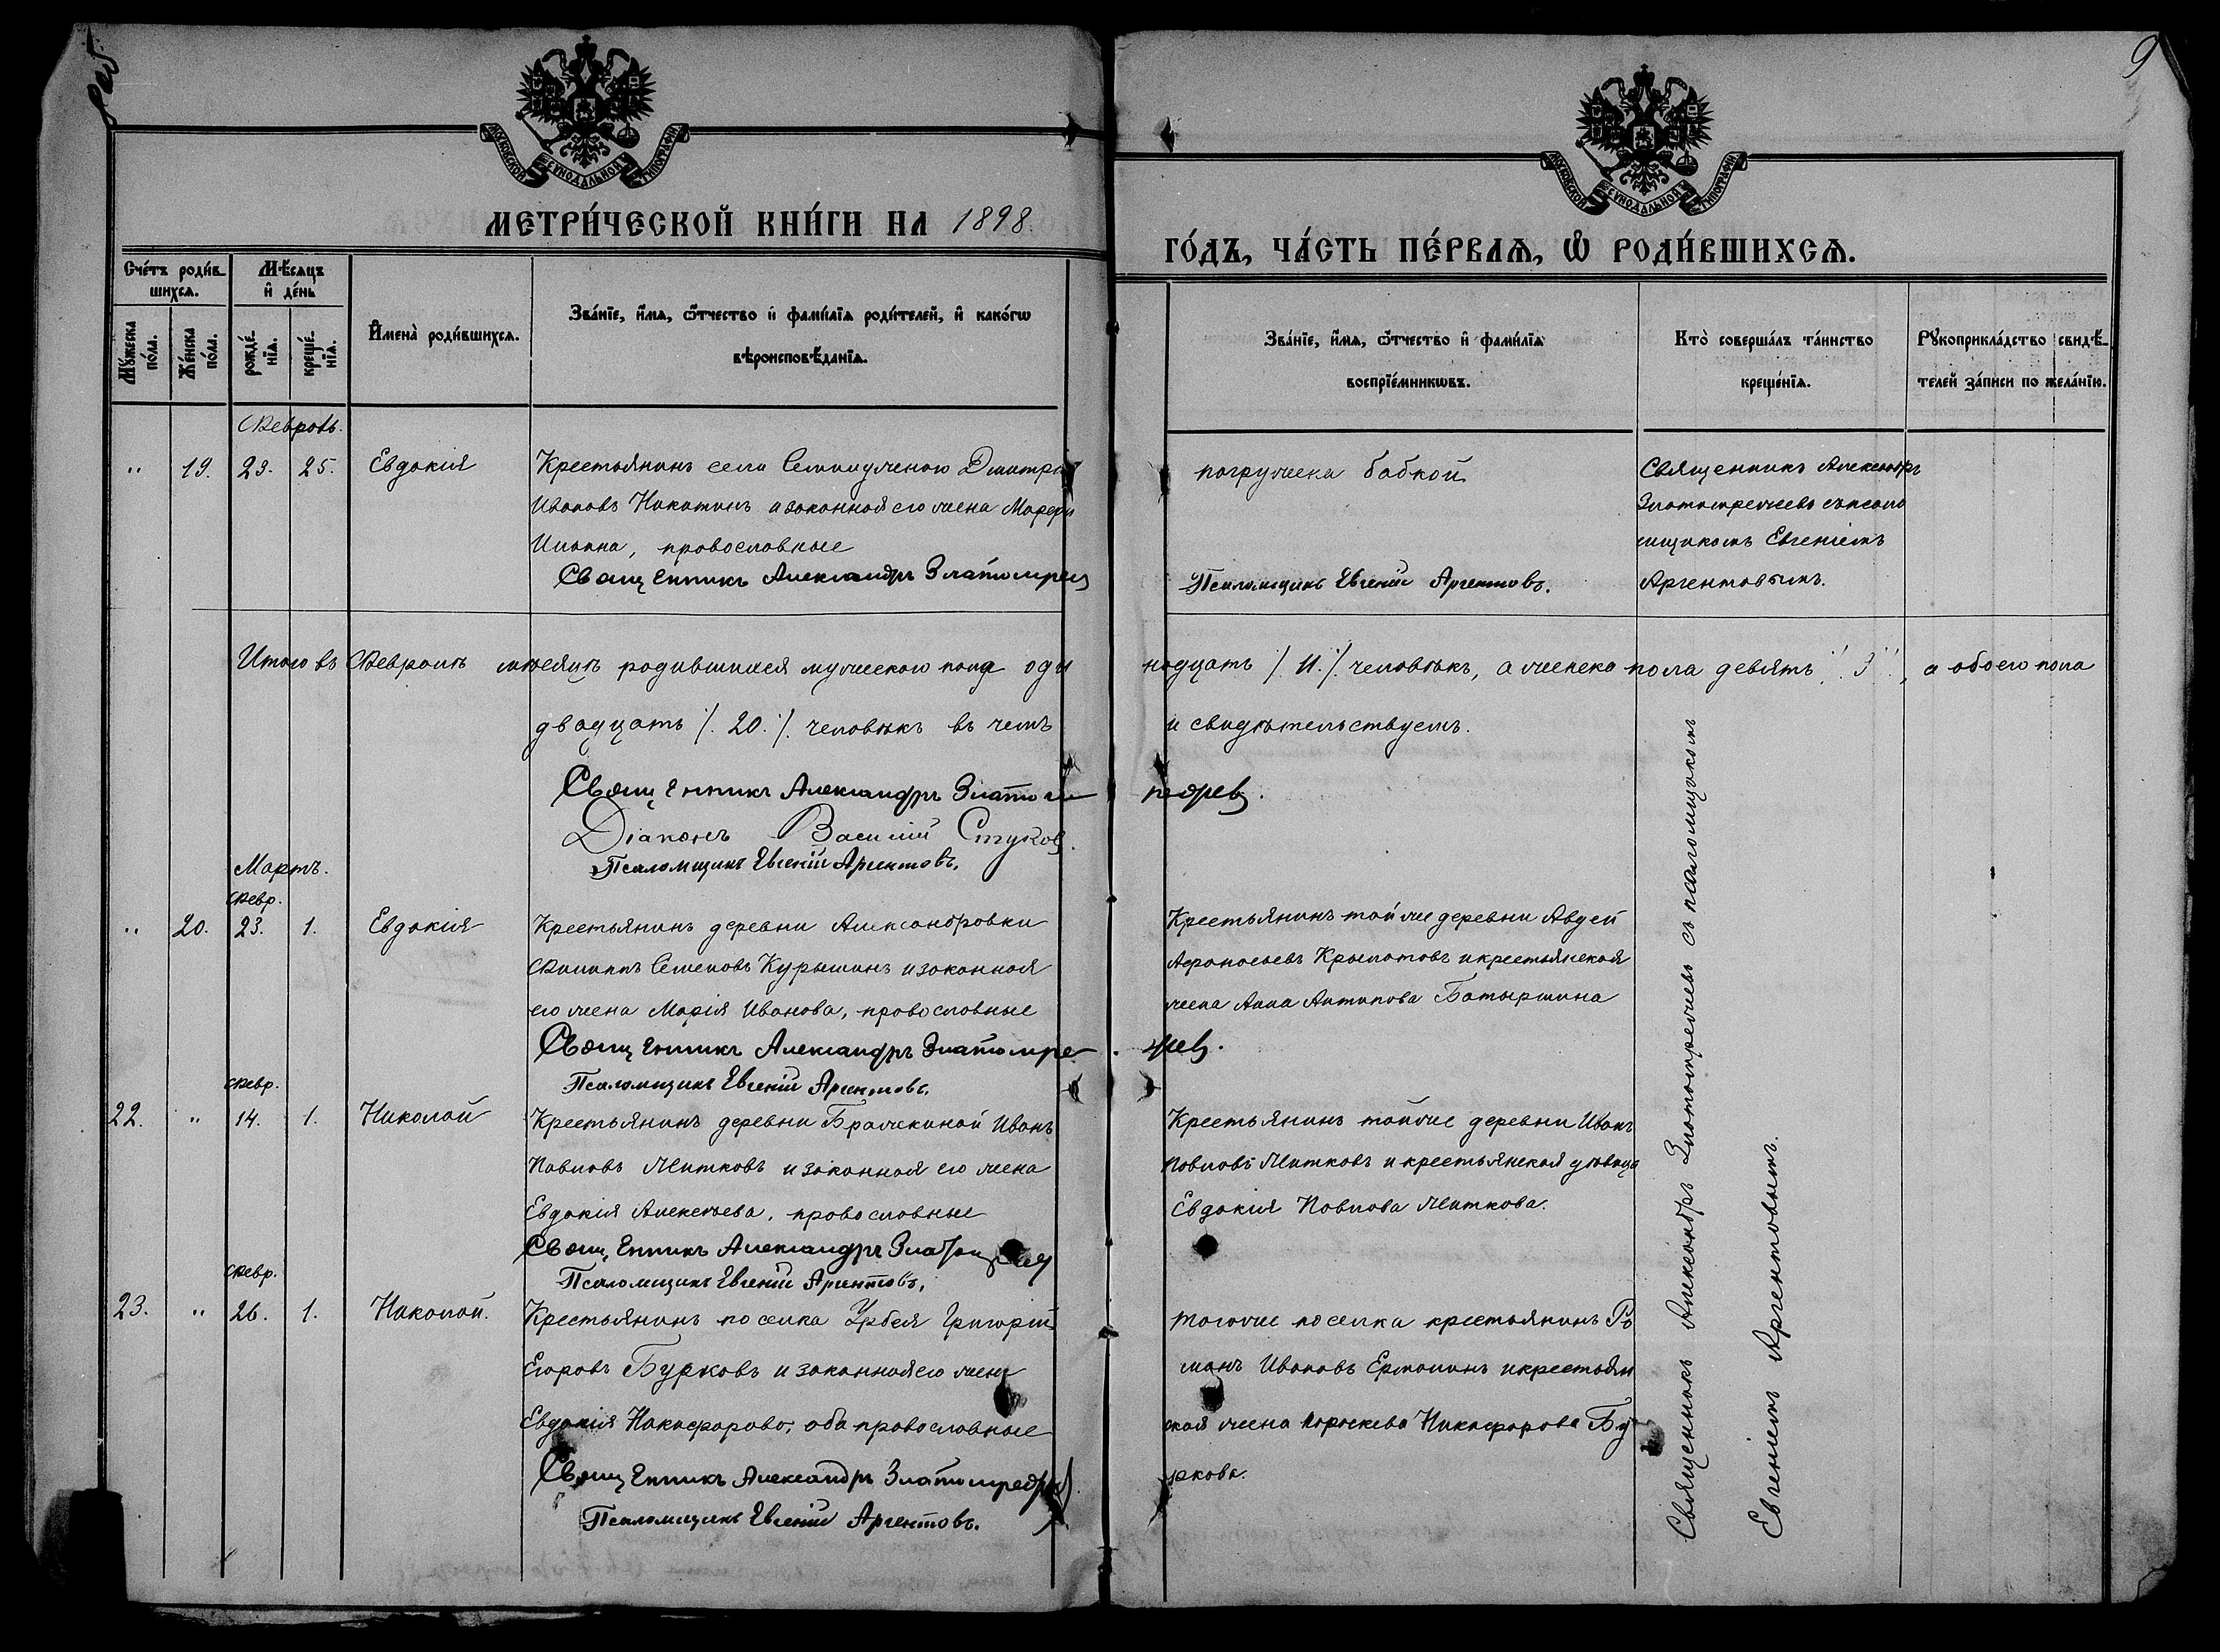 9
МОСКОВСКОЙ СУНОДАЛЬНОЙ ТИПОГРАФІИ
МОСКОВСКОЙ СУНОДАЛЬНОЙ ТИПОГРАФІИ
МЕТРИ́ЧЕСКОЙ КНИ́ГИ НА 1898
ГО́ДЪ, ЧА́СТЬ ПЕ́РВАѦ, Ѡ РОДИ́ВШИХСѦ.
Сче́тъ роди́вшихсѧ.
Мꙋ́жеска по́ла.
Же́нска по́ла.
Мѣ́сѧцъ и҆ де́нь
рожде́нїѧ.
креще́нїѧ.
И҆мена̀ роди́вшихсѧ.
Зва́нїе, и҆́мѧ, ѻ҆́тчество и҆ фами́лїѧ роди́телей, и҆ како́гѡ
вѣроисповѣ́данїѧ.
Зва́нїе, и҆́мѧ, ѻ҆́тчество и҆ фами́лїѧ
воспрїе́мникѡвъ.
Кто̀ соверша́лъ та́инство
креще́нїѧ.
Рꙋкоприкла́дство свидѣ́телей за́писи по жела́нїю.
Февраль.
" 19. 23. 25. Евдокія
Крестьянинъ села Дмитрій
Ивановъ Никитинъ и законная его жена Марѳа
Ильина, православные
Священникъ Александръ Златомрежев
погружена бабкой
Псаломщикъ Евгеній Аргентовъ.
Священникъ Александръ
Златомрежевъ съ псалом
щикомъ Евгеніемъ
Аргентовымъ.
Итого въ Февралѣ мѣсяцѣ родившихся мужескаго пола оди
надцать /. 11. /. человѣкъ, а женска пола девять, " 9 ", а обоего пола
двадцать /. 20. /. человѣкъ въ чемъ
и свидѣтельствуемъ.
Священникъ Александръ Златом
режев.
Діаконъ Василій Стуков.
Псаломщикъ Евгеній Аргентовъ.
Мартъ.
февр.
" 20. 23. 1. Евдокія
Крестьянинъ деревни Александровки
Филиппъ Семеновъ Курышинъ и законная
его жена Марія Иванова, православные
Священникъ Александръ Златомре
жев.
Псаломщикъ Евгеній Аргентовъ.
Крестьянинъ той же деревни Авдей
Афанасьевъ и крестьянская
жена Анна Антипова Батыршина
февр.
22. " 14. 1. Николай
Крестьянинъ деревни Бражкиной Иванъ
Павловъ Митковъ и законная его жена
Евдокія Алексѣева, православные
Священникъ Александръ
Псаломщикъ Евгеній Аргентовъ.
Крестьянинъ той же деревни Иванъ
Павловъ Митковъ и крестьянская дѣвица
Евдокія Павлова Миткова.
февр.
23. " 26. 1. Николай.
Крестьянинъ поселка Урбея Григорій
Егоровъ Бурковъ и законная его жена
Евдокія Никифорова, оба православные
Священникъ Александръ Златомрежев
Псаломщикъ Евгеній Аргентовъ.
Того же поселка крестьянинъ Ро
манъ Ивановъ Ермолинъ и крестьян
ская жена Параскева Никифорова Бу
ркова.
Священникъ Александръ Златомрежевъ съ псаломщикомъ
Евгеніемъ Аргентовымъ.